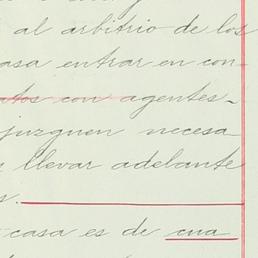 al arbitrio de los
casa entrar en con-
atos con agentes-
juzguen necesa
llevar adelante
s.
casa es de cua